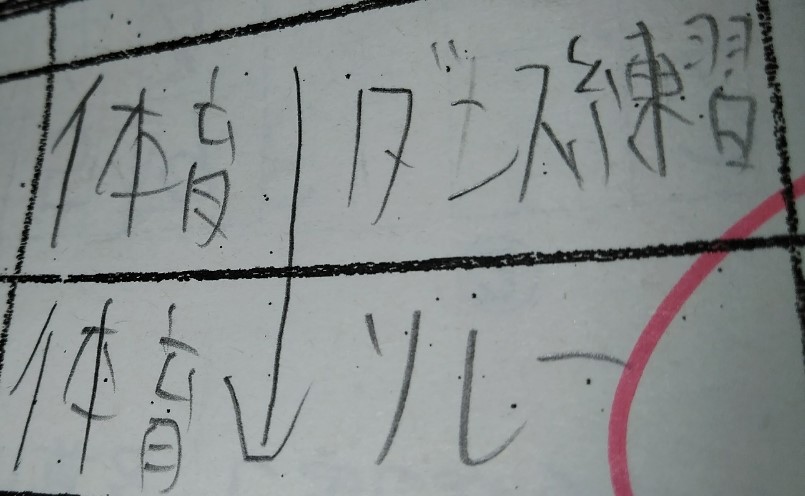 体育 ダンス練習
体育 リレー